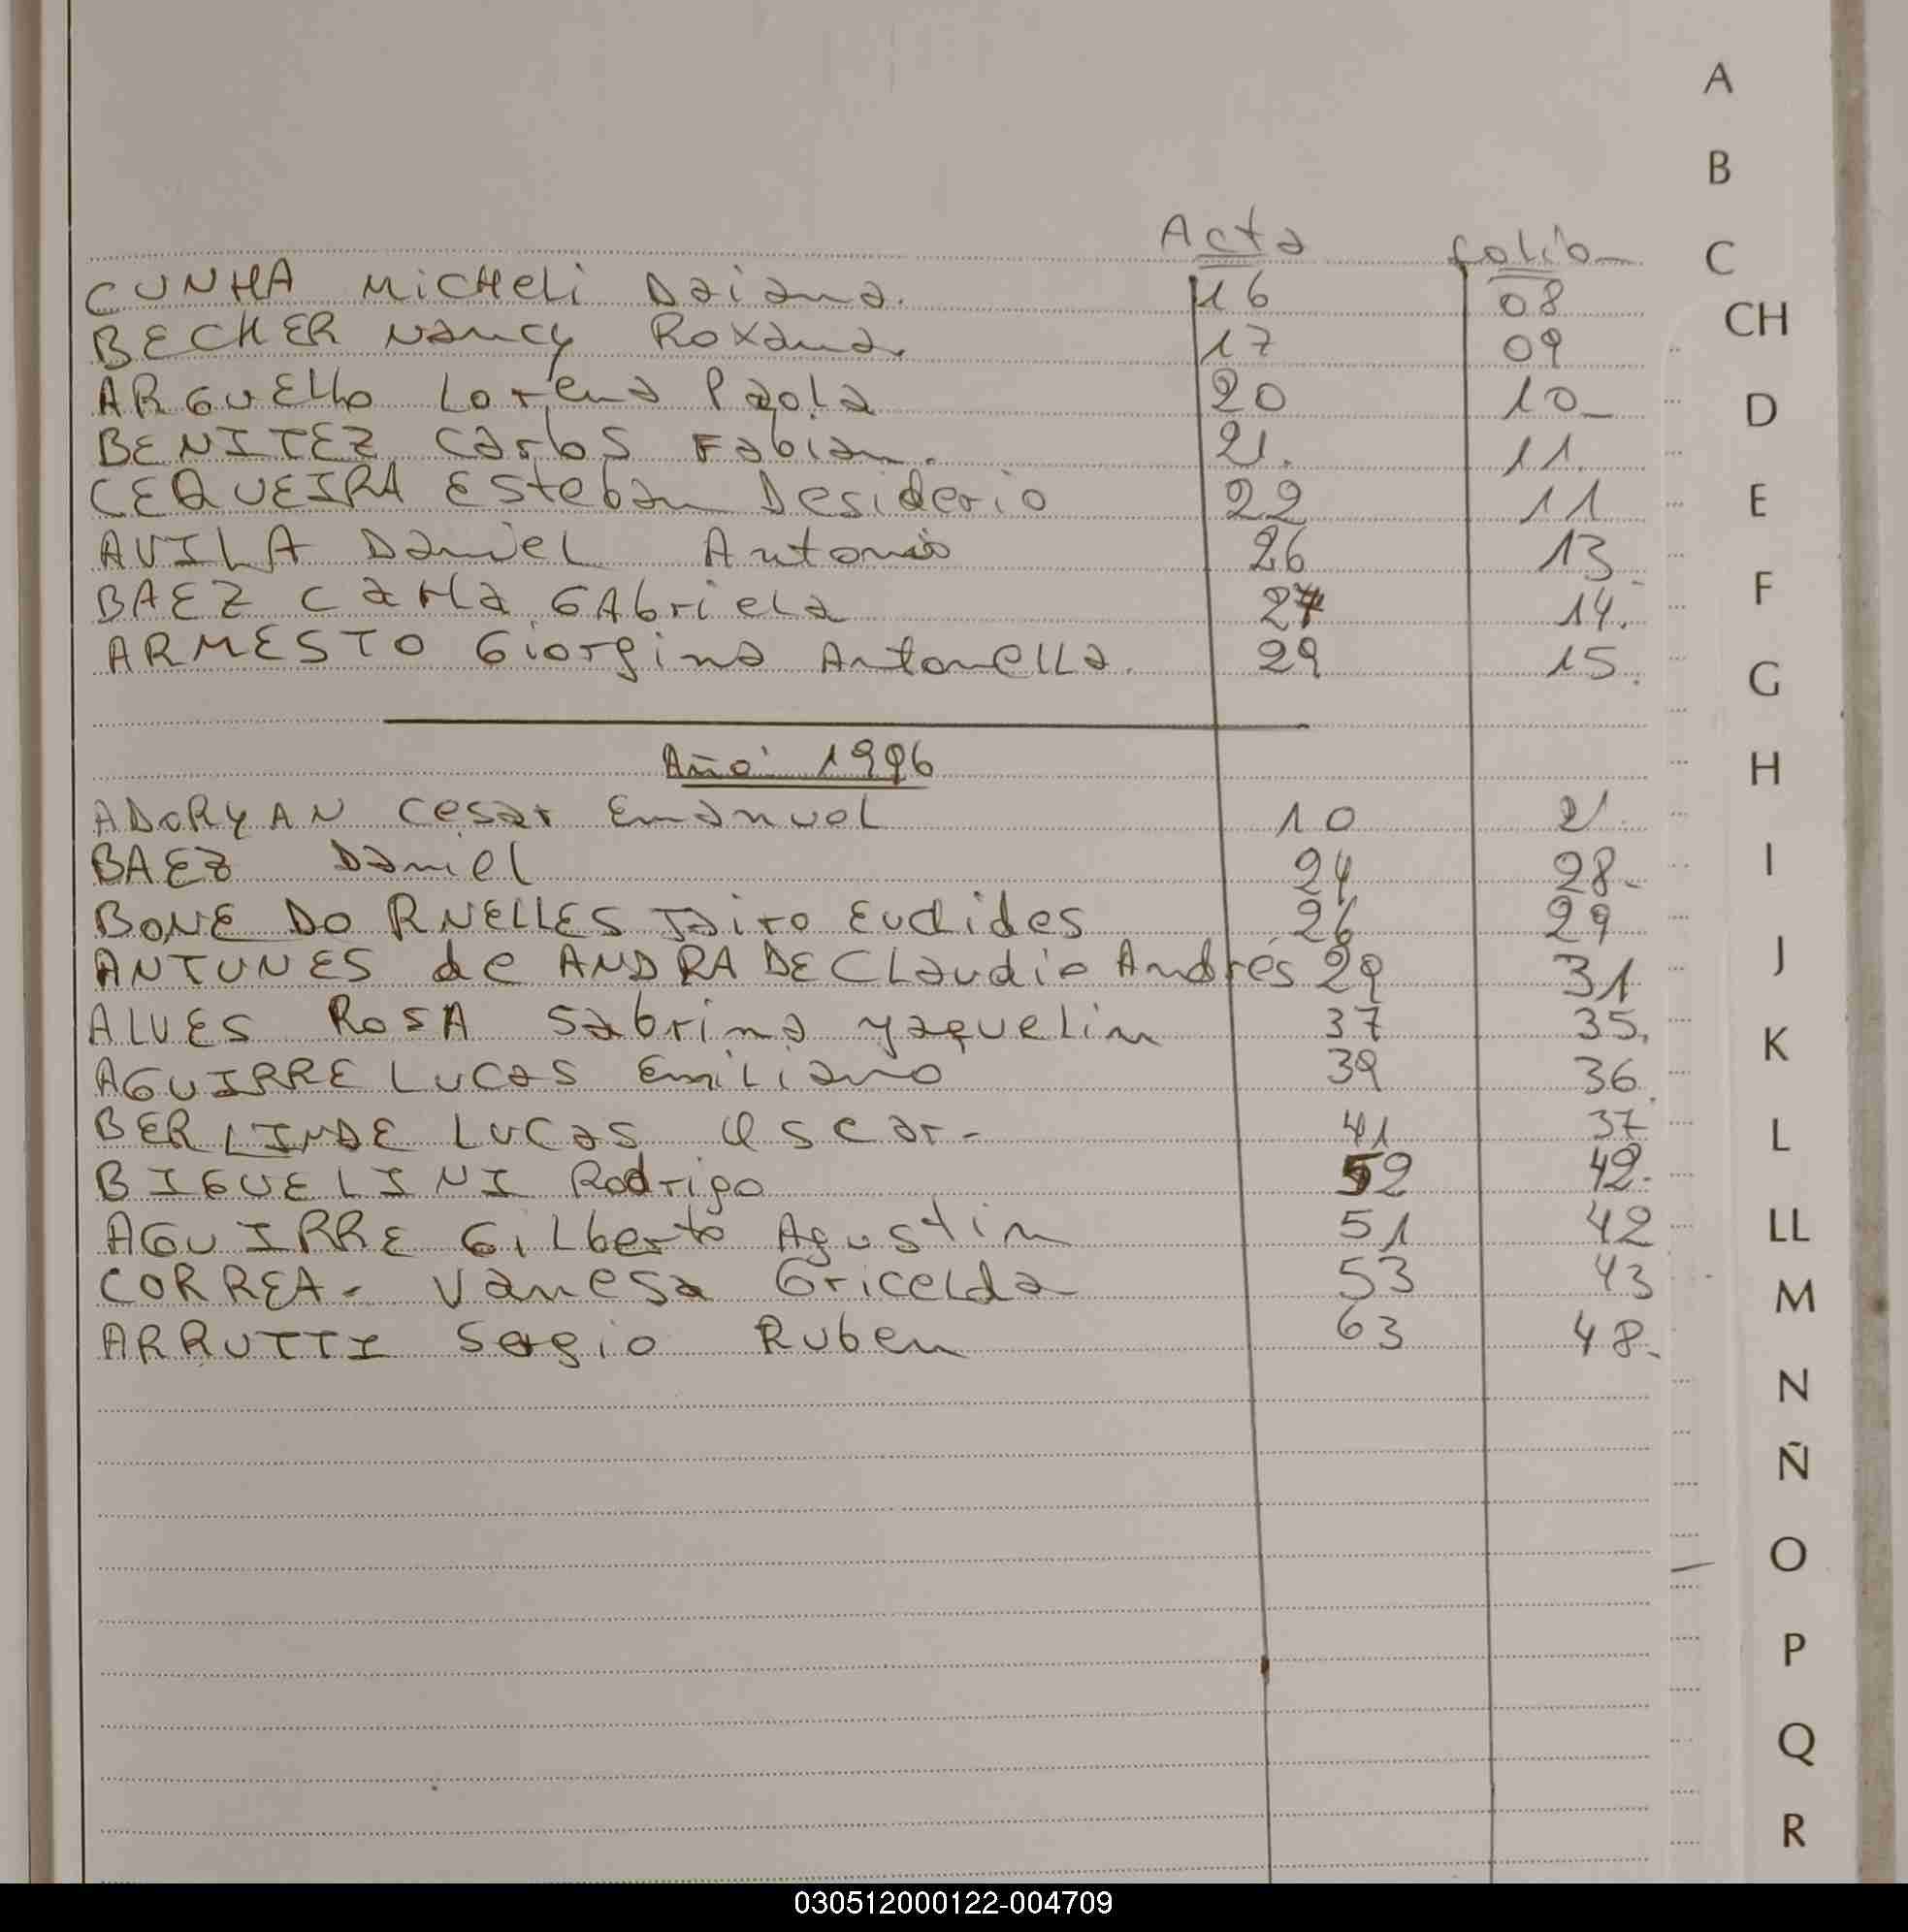 A
B
Acta folio
C
CUNHA Micheli Daiana. 16 08
CH
BECHER Nancy Roxana. 17 09
ARGUELLO Lorena Paola 20 10
D
BENITEZ Carlos Fabian. 21. 11.
CEQUEIRA Esteban Desiderio 22 11
E
AVILA Daniel Antonio 26 13.
F
BAEZ Carla GAbriela 27 14.
ARMESTO Giorgina Antonella. 29 15.
G
Año: 1996
H
ADORYAN Cesar Emanuel 10 21.
BAEZ Daniel 24 28.
I
BONE DO RNELLES Jairo Euclides 26 29
ANTUNES de ANDRADE Claudio Andrés 29 31
J
ALVES ROSA Sabrina Yaquelin 37 35.
K
AGUIRRE Lucas Emiliano 39 36.
BERLINDE Lucas Oscar- 41 37
L
BIGUELINI Rodrigo 52 42.
AGUIRRE Gilberto Agustin 51 42
LL
CORREA- Vanesa Gricelda 53 43
M
ARRUTTI Sergio Ruben 63 48.
N
Ñ
O
P
Q
R
030512000122-004709